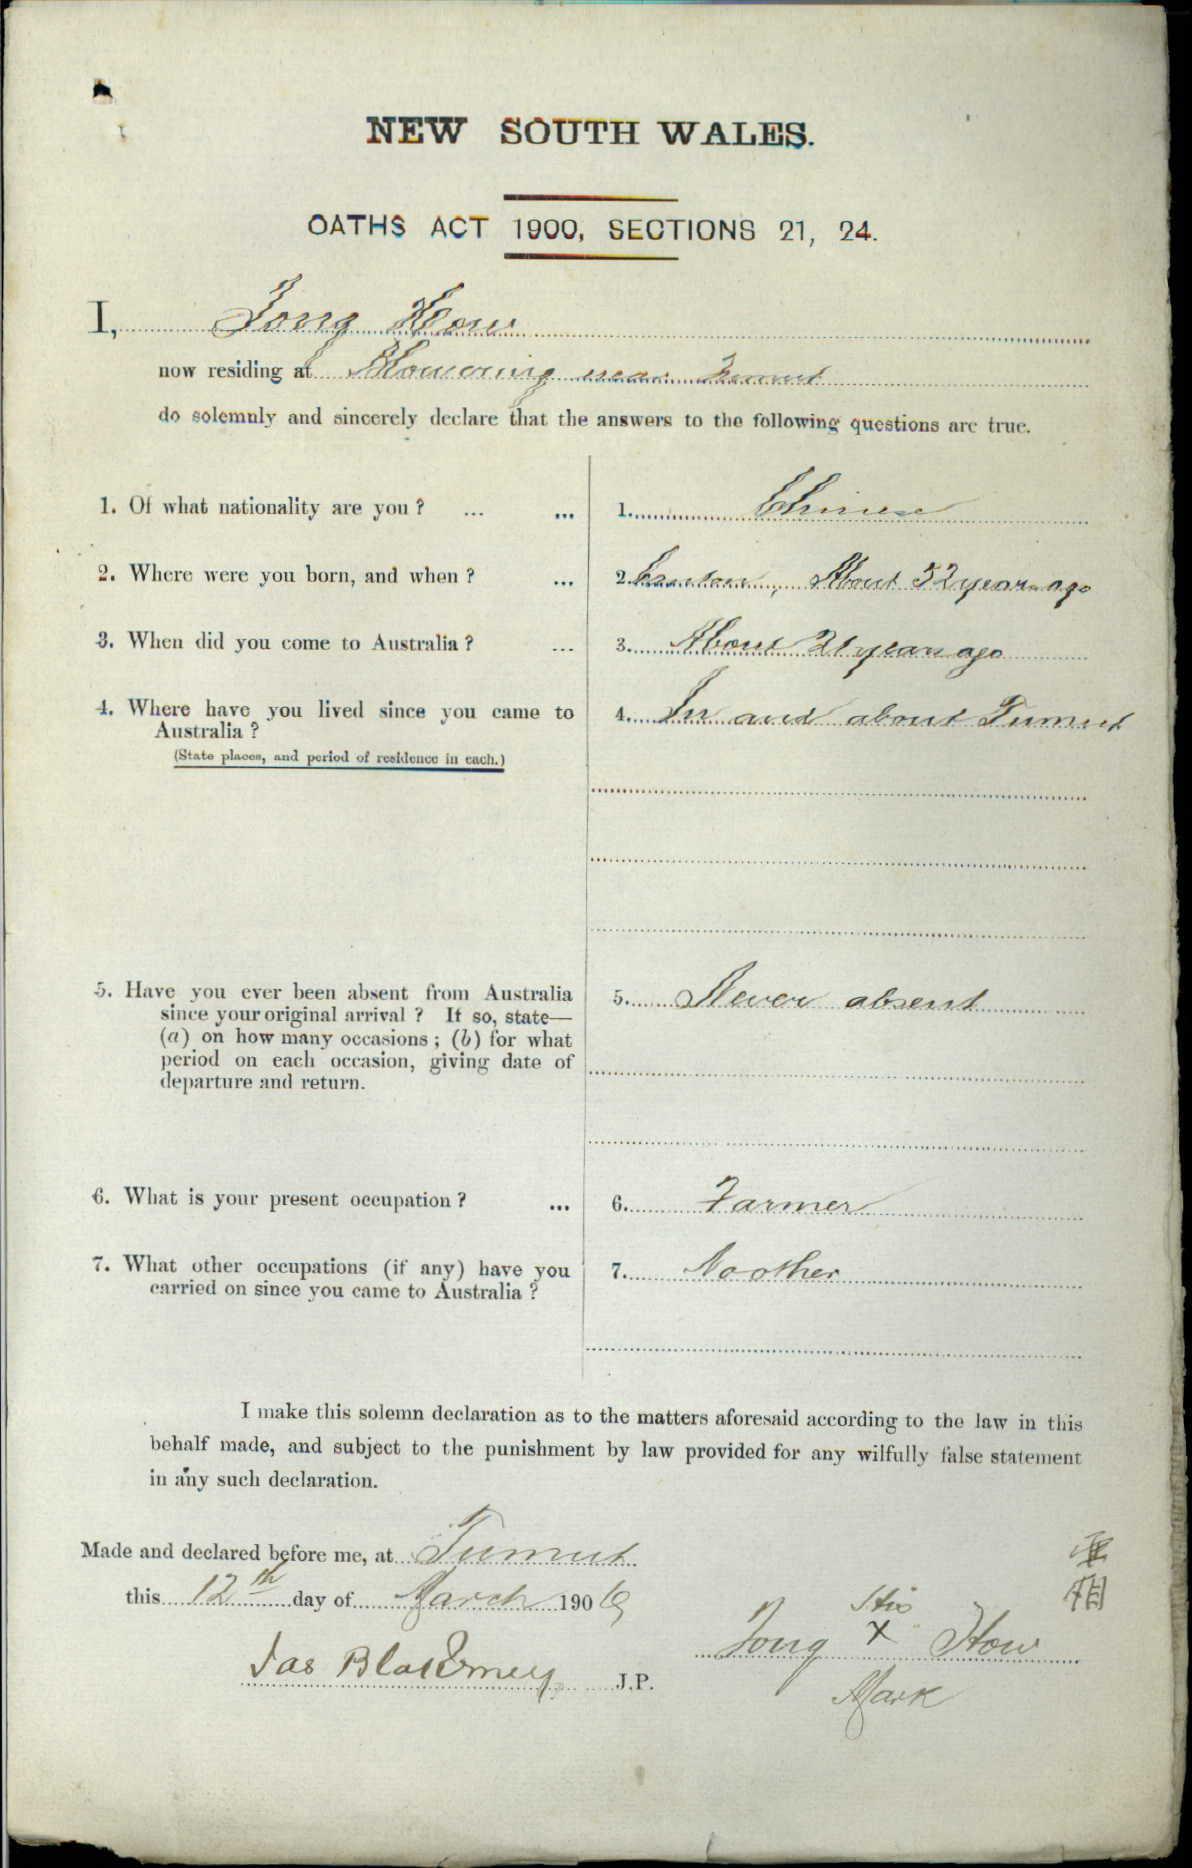 NEW SOUTH WALES.
OATHS ACT 1900, SECTIONS 21, 24.
I, Jong How
now residing at Blowering near Tumut
do solemnly and sincerely declare that the answers to the following questions are true.
1. Of what nationality are you ? ... ... 1. Chinese
2. Where were you born, and when ? ... 2. Canton, About 52 years ago
3. When did you come to Australia ? ... 3. About 21 years ago
4. Where have you lived since you came to 4. In and about Tumut
Australia ?
(State places, and period of residence in each.)
5. Have you ever been absent from Australia 5. Never absent
since your original arrival ? If so, state—
(a) on how many occasions ; (b) for what
period on each occasion, giving date of
departure and return.
6. What is your present occupation ? ... 6. Farmer
7. What other occupations (if any) have you 7. No other
carried on since you came to Australia ?
I make this solemn declaration as to the matters aforesaid according to the law in this
behalf made, and subject to the punishment by law provided for any wilfully false statement
in any such declaration.
Made and declared before me, at Tumut
this 12th day of March 190
His
Jong X How
Mark
Jas Blakeney J.P.